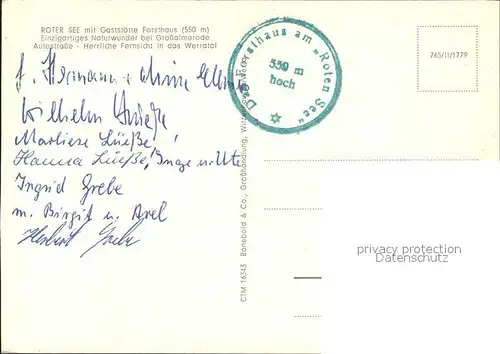 ROTER SEE mit Gaststätte Forsthaus (550 m)
Einzigartiges Naturwunder bei Großalmerode
Autostraße - Herrliche Fernsicht in das Werratal
Das Forsthaus am „Roten See“
550 m
hoch
765/II/1779
Hermann
Wilhelm
Marliese Lüeße
Hanna Lüeße, Inge
Ingrid Grebe
m. Birgit u. Axel
Herbert Grebe
CTM 16343 Bonebold & Co., Großhandlung,
privacy protection
DaniskAMs.com